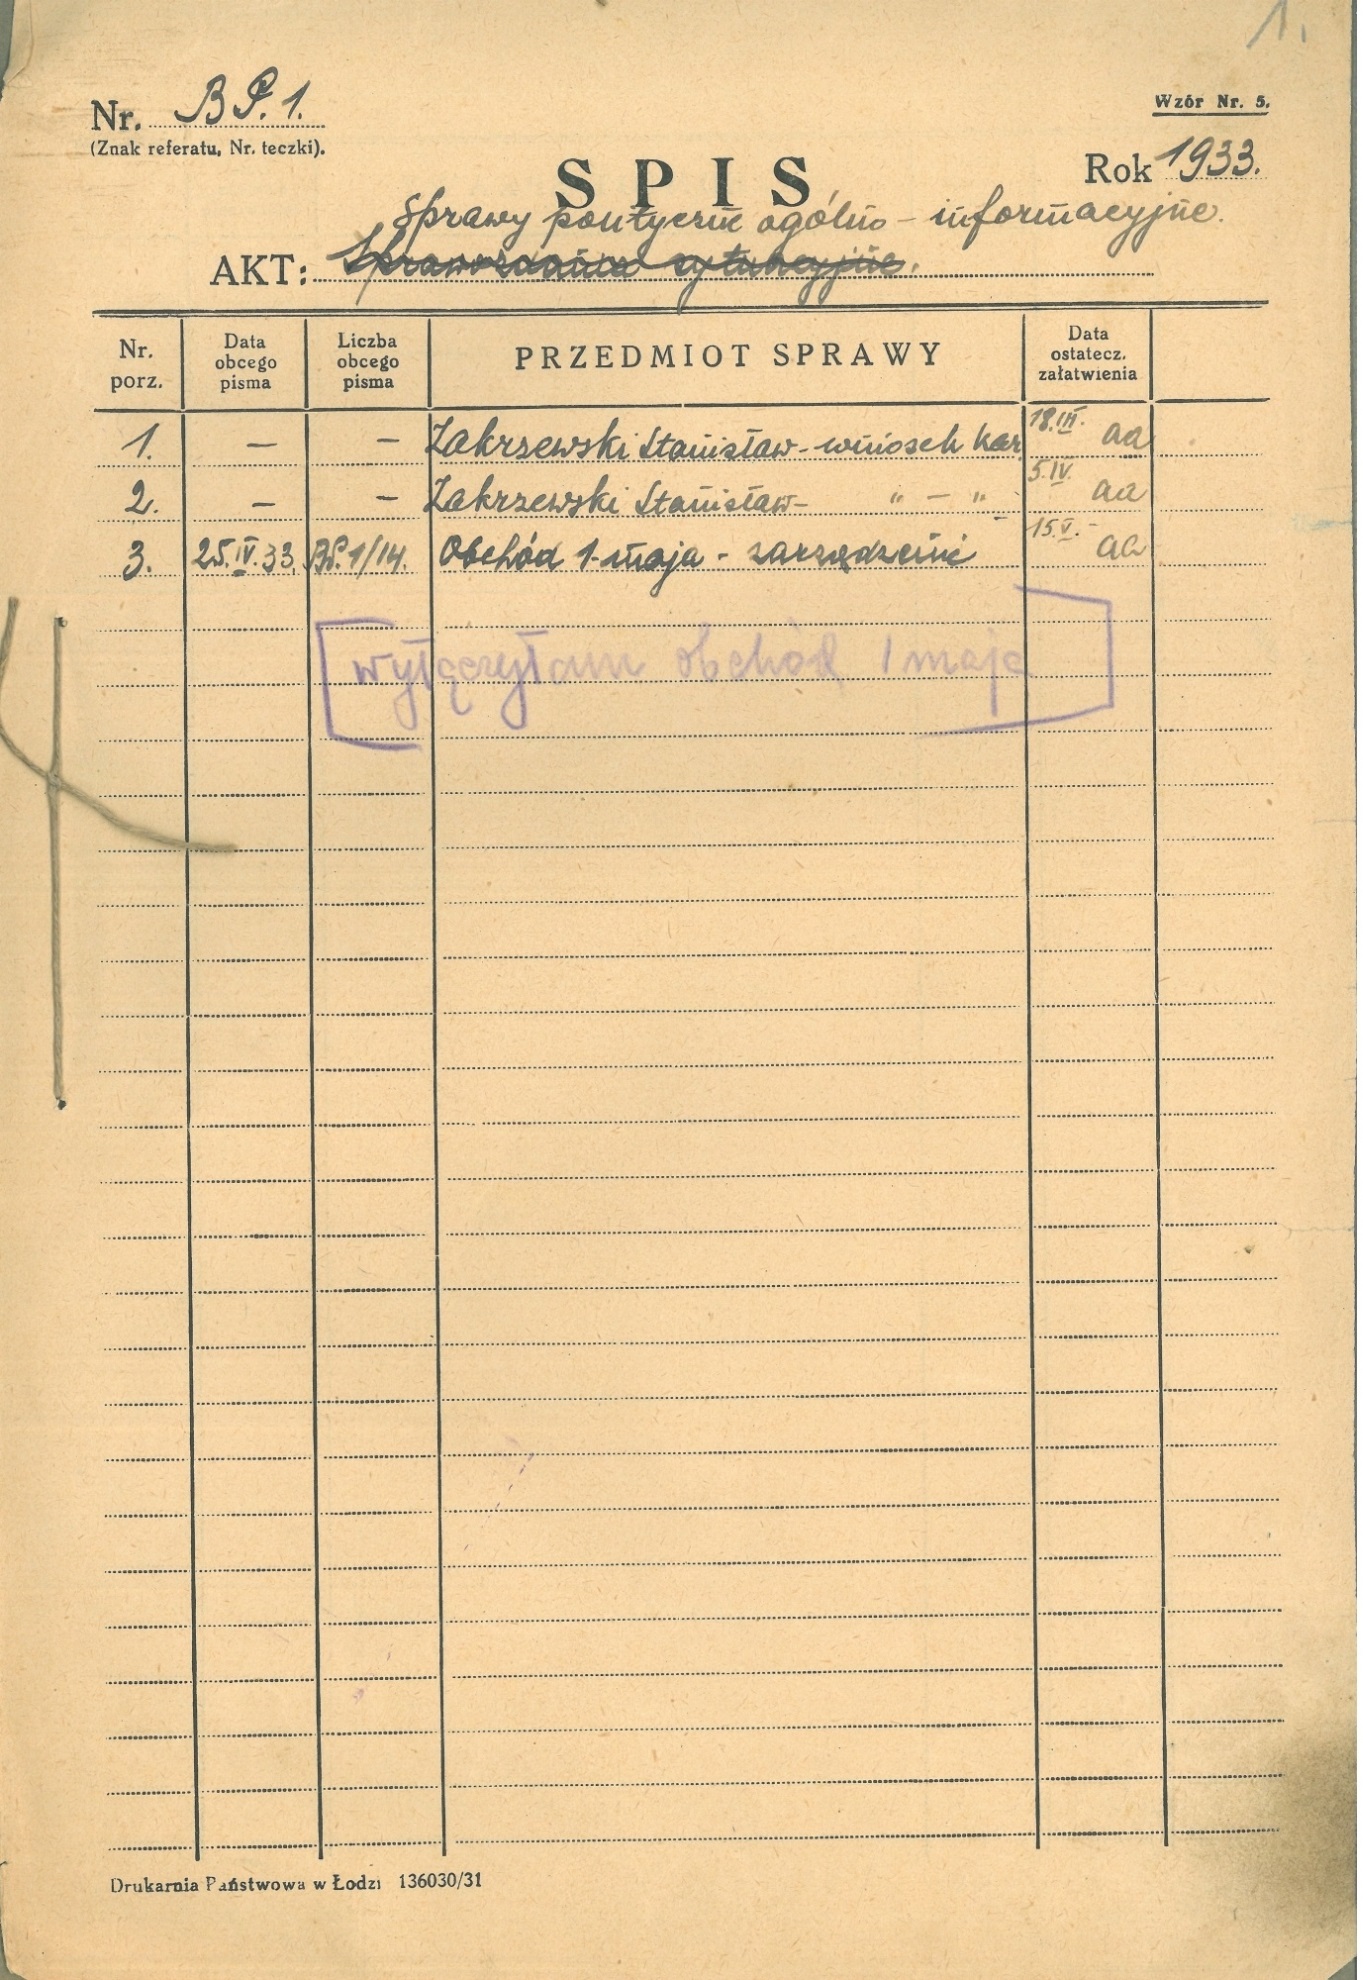 1.
Nr. BP. 1.
(Znak referatu, Nr. teczki).
Wzór Nr. 5.
Rok 1933.
SPIS
Sprawy polityczne ogólno - informacyjne.
AKT: Sprawozdania sytuacyjne.
Nr. porz. Data obcego pisma Liczba obcego pisma PRZEDMIOT SPRAWY Data ostatecz. załatwienia
1. — — Zakrzewski Stanisław - wniosek kar 18.III. aa
2. — — Zakrzewski Stanisław - „ — „ 5.IV. aa
3. 25.IV.33. BP. 1/14. Obchód 1-maja - zarządzenie 15.V. - aa
wyłączyłam obchód 1 maja
Drukarnia Państwowa w Łodzi 136030/31